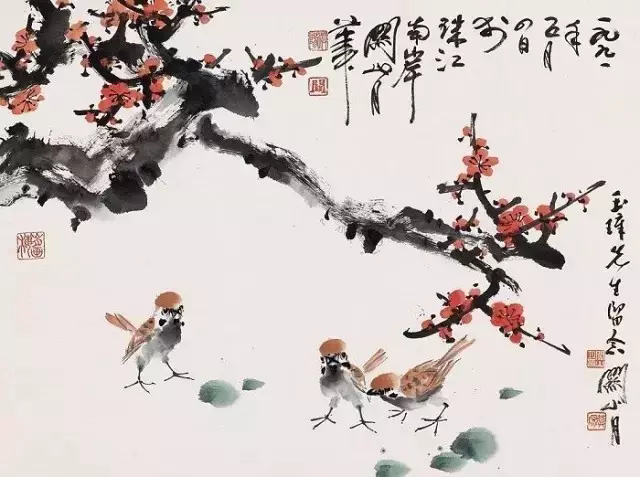 年
五月
四日
於
珠江
南岸
關山月
筆
玉璋先生留念
關山月